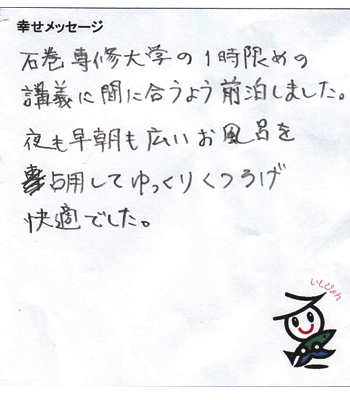 幸せメッセージ
石巻専修大学の1時限めの
講義に間に合うよう前泊しました。
夜も早朝も広いお風呂を
占用してゆっくりくつろげ
快適でした。
いしぴょん